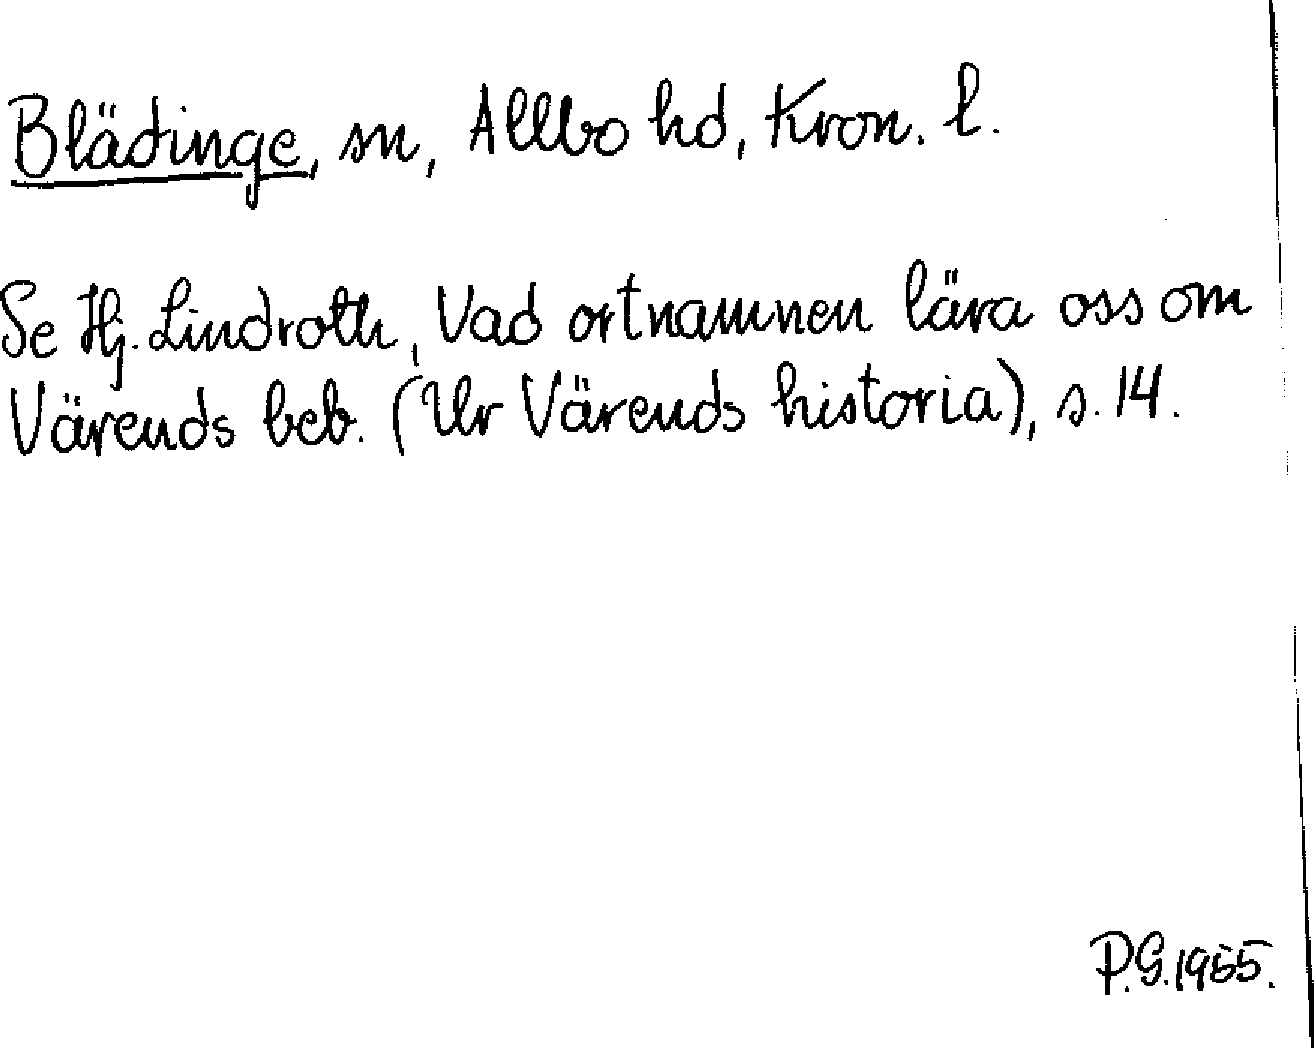 Blädinge, sn, Allbo hd, Kron. l.
Se Hj. Lindroth, Vad ortnamnen lära oss om
Värends beb. (Ur Värends historia), s. 14.
P.G. 1955.